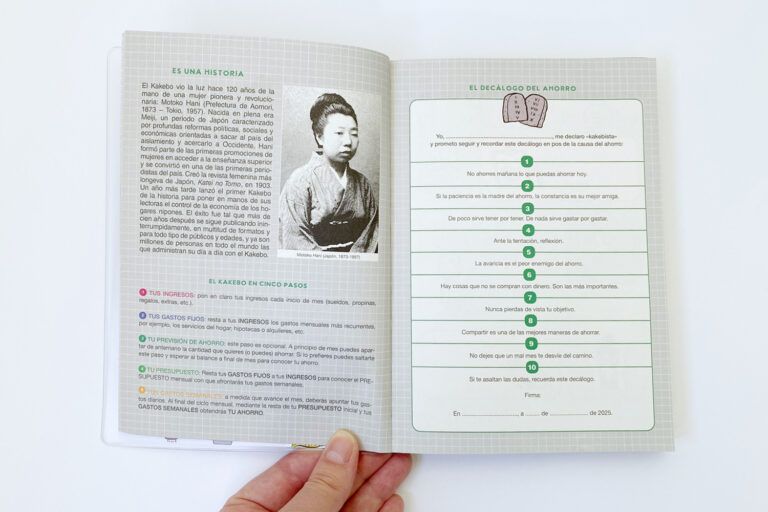 ES UNA HISTORIA
El Kakebo vio la luz hace 120 años de la
mano de una mujer pionera y revolucio-
naria: Motoko Hani (Prefectura de Aomori,
1873 – Tokio, 1957). Nacida en plena era
Meiji, un período de Japón caracterizado
por profundas reformas políticas, sociales y
económicas orientadas a sacar al país del
aislamiento y acercarlo a Occidente, Hani
formó parte de las primeras promociones de
mujeres en acceder a la enseñanza superior
y se convirtió en una de las primeras perio-
distas del país. Creó la revista femenina más
longeva de Japón, Katei no Tomo, en 1903.
Un año más tarde lanzó el primer Kakebo
de la historia para poner en manos de sus
lectoras el control de la economía de los ho-
gares nipones. El éxito fue tal que más de
cien años después se sigue publicando inin-
terrumpidamente, en multitud de formatos y
para todo tipo de públicos y edades, y ya son
millones de personas en todo el mundo las
que administran su día a día con el Kakebo.
Motoko Hani (Japón, 1873-1957)
EL KAKEBO EN CINCO PASOS
1 TUS INGRESOS: pon en claro tus ingresos cada inicio de mes (sueldos, propinas,
regalos, extras, etc.).
2 TUS GASTOS FIJOS: resta a tus INGRESOS los gastos mensuales más recurrentes,
por ejemplo, los servicios del hogar, hipotecas o alquileres, etc.
3 TU PREVISIÓN DE AHORRO: este paso es opcional. A principio de mes puedes apar-
tar de antemano la cantidad que quieres (o puedes) ahorrar. Si lo prefieres puedes saltarte
este paso y esperar al balance a final de mes para conocer tu ahorro.
4 TU PRESUPUESTO: Resta tus GASTOS FIJOS a tus INGRESOS para conocer el PRE-
SUPUESTO mensual con que afrontarás tus gastos semanales.
5 TUS GASTOS SEMANALES: a medida que avance el mes, deberás apuntar tus gas-
tos diarios. Al final del ciclo mensual, mediante la resta de tu PRESUPUESTO inicial y tus
GASTOS SEMANALES obtendrás TU AHORRO.
EL DECÁLOGO DEL AHORRO
Yo, ............................................, me declaro «kakebista»
y prometo seguir y recordar este decálogo en pos de la causa del ahorro:
1
No ahorres mañana lo que puedas ahorrar hoy.
2
Si la paciencia es la madre del ahorro, la constancia es su mejor amiga.
3
De poco sirve tener por tener. De nada sirve gastar por gastar.
4
Ante la tentación, reflexión.
5
La avaricia es el peor enemigo del ahorro.
6
Hay cosas que no se compran con dinero. Son las más importantes.
7
Nunca pierdas de vista tu objetivo.
8
Compartir es una de las mejores maneras de ahorrar.
9
No dejes que un mal mes te desvíe del camino.
10
Si te asaltan las dudas, recuerda este decálogo.
Firma:
En ......................, a ........ de ................ de 2025.